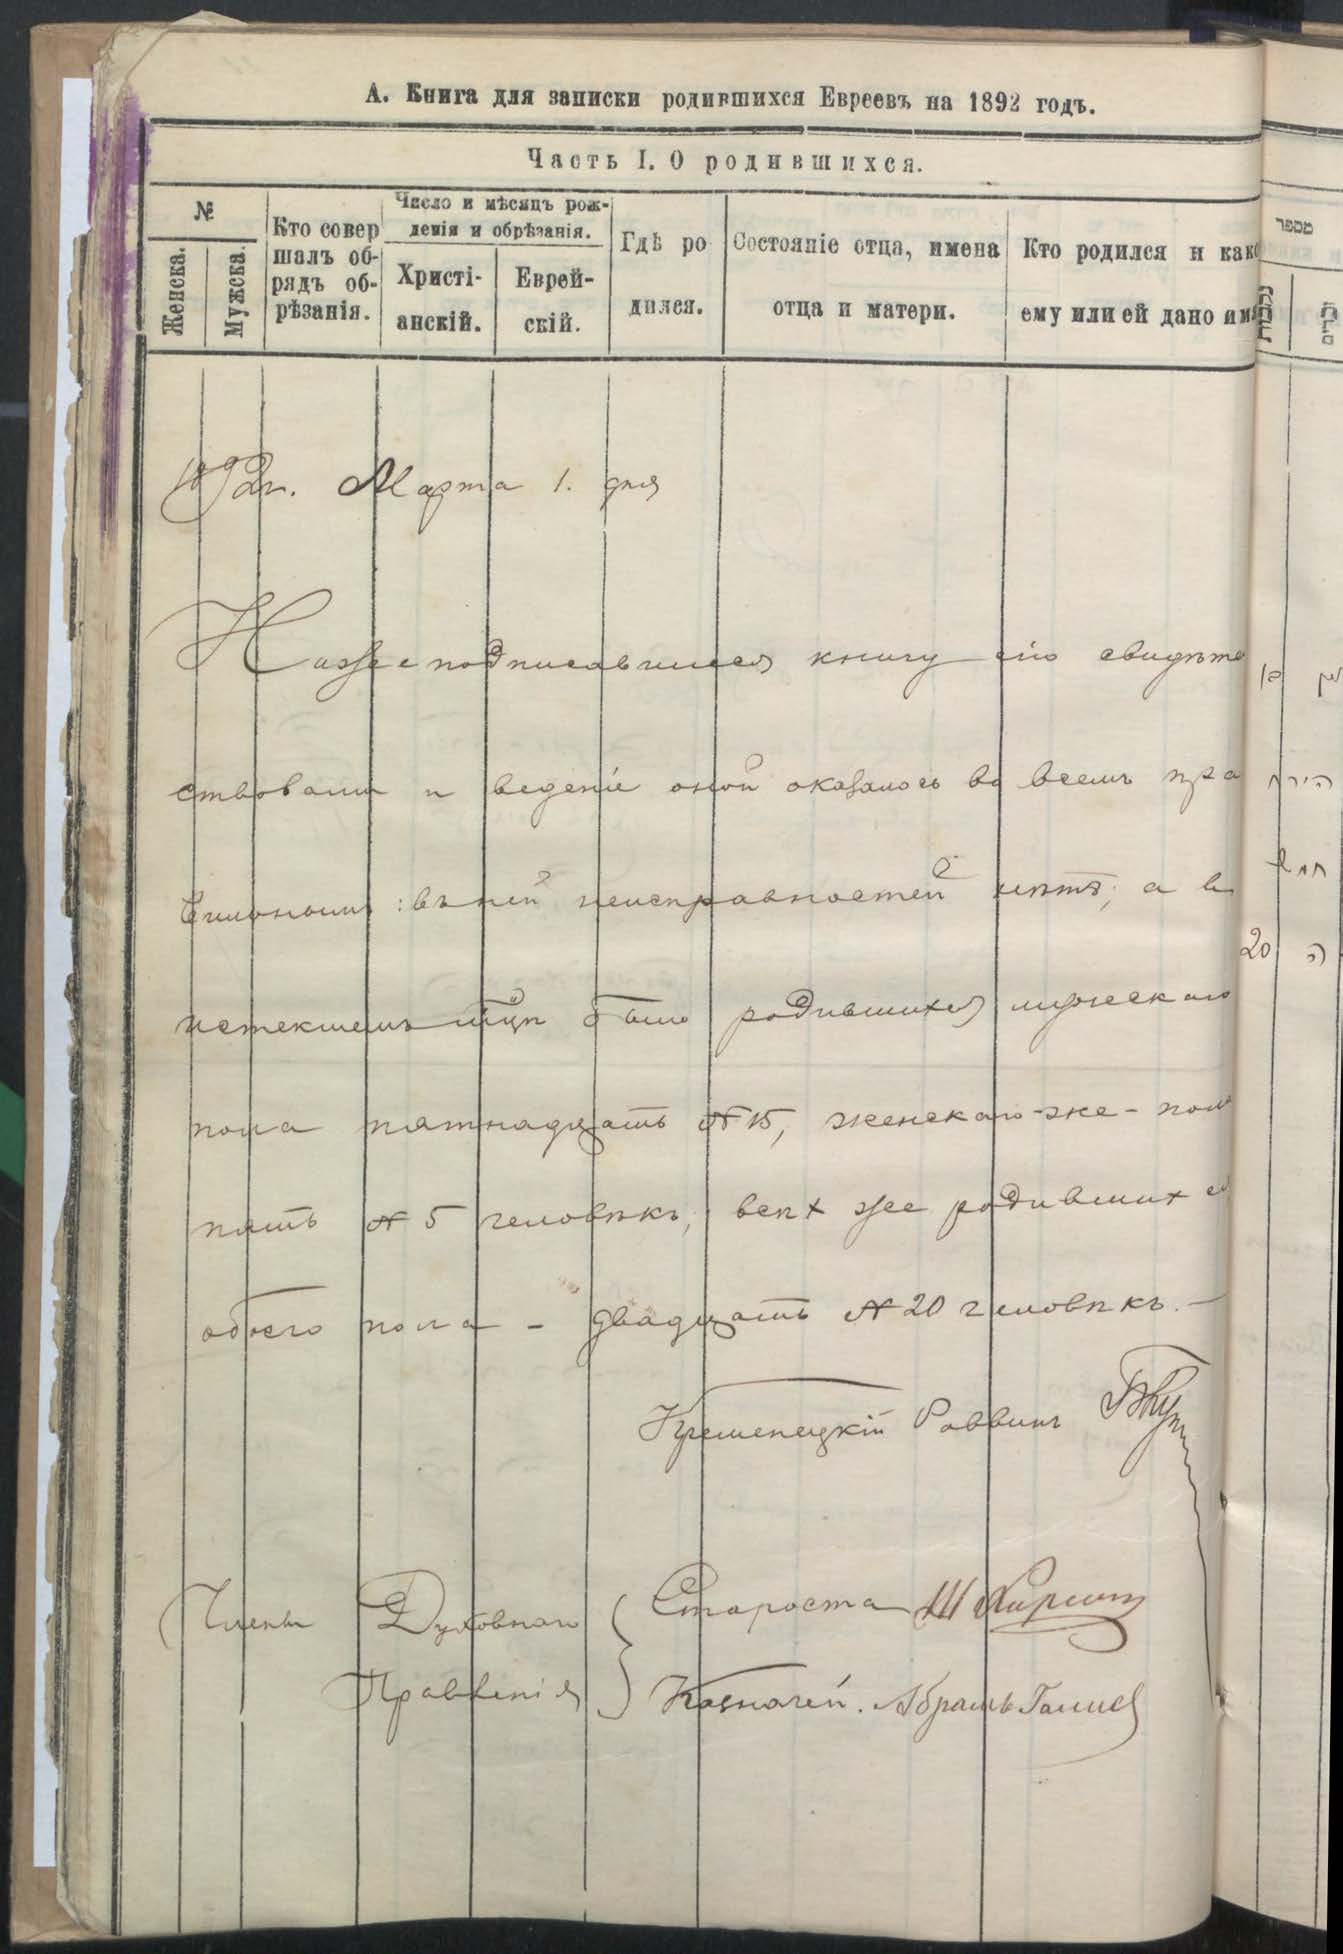 А. Книга для записки родившихся Евреевъ на 1892 годъ.
Часть I. О родившихся.
№
Женска.
Мужска.
Кто совер
шалъ об-
рядъ об-
рѣзанія.
Число и мѣсяцъ рож-
денія и обрѣзанія.
Христі-
анскій.
Еврей-
скій.
Гдѣ ро
дился.
Состояніе отца, имена
отца и матери.
Кто родился и како
ему или ей дано имя
1892г. Марта 1. дня
Нижеподписавшіеся книгу сію свидѣте
ствовали и веденіе оной оказалось во всемъ пра
вильнымъ: въ ней неисправностей нѣтъ; а въ
истекшемъ мѣсяцѣ было родившихся мужескаго
пола пятнадцать № 15, женскаго-же-пола
пять № 5 человѣкъ; всѣхъ же родившихся
обоего пола - двадцать № 20 человѣкъ. -
Кременецкій Раввинъ
Члены Духовнаго
Правленія
Староста Ш
Казначей. Абрамъ
מספר
נקבות
זכרים
20 ה